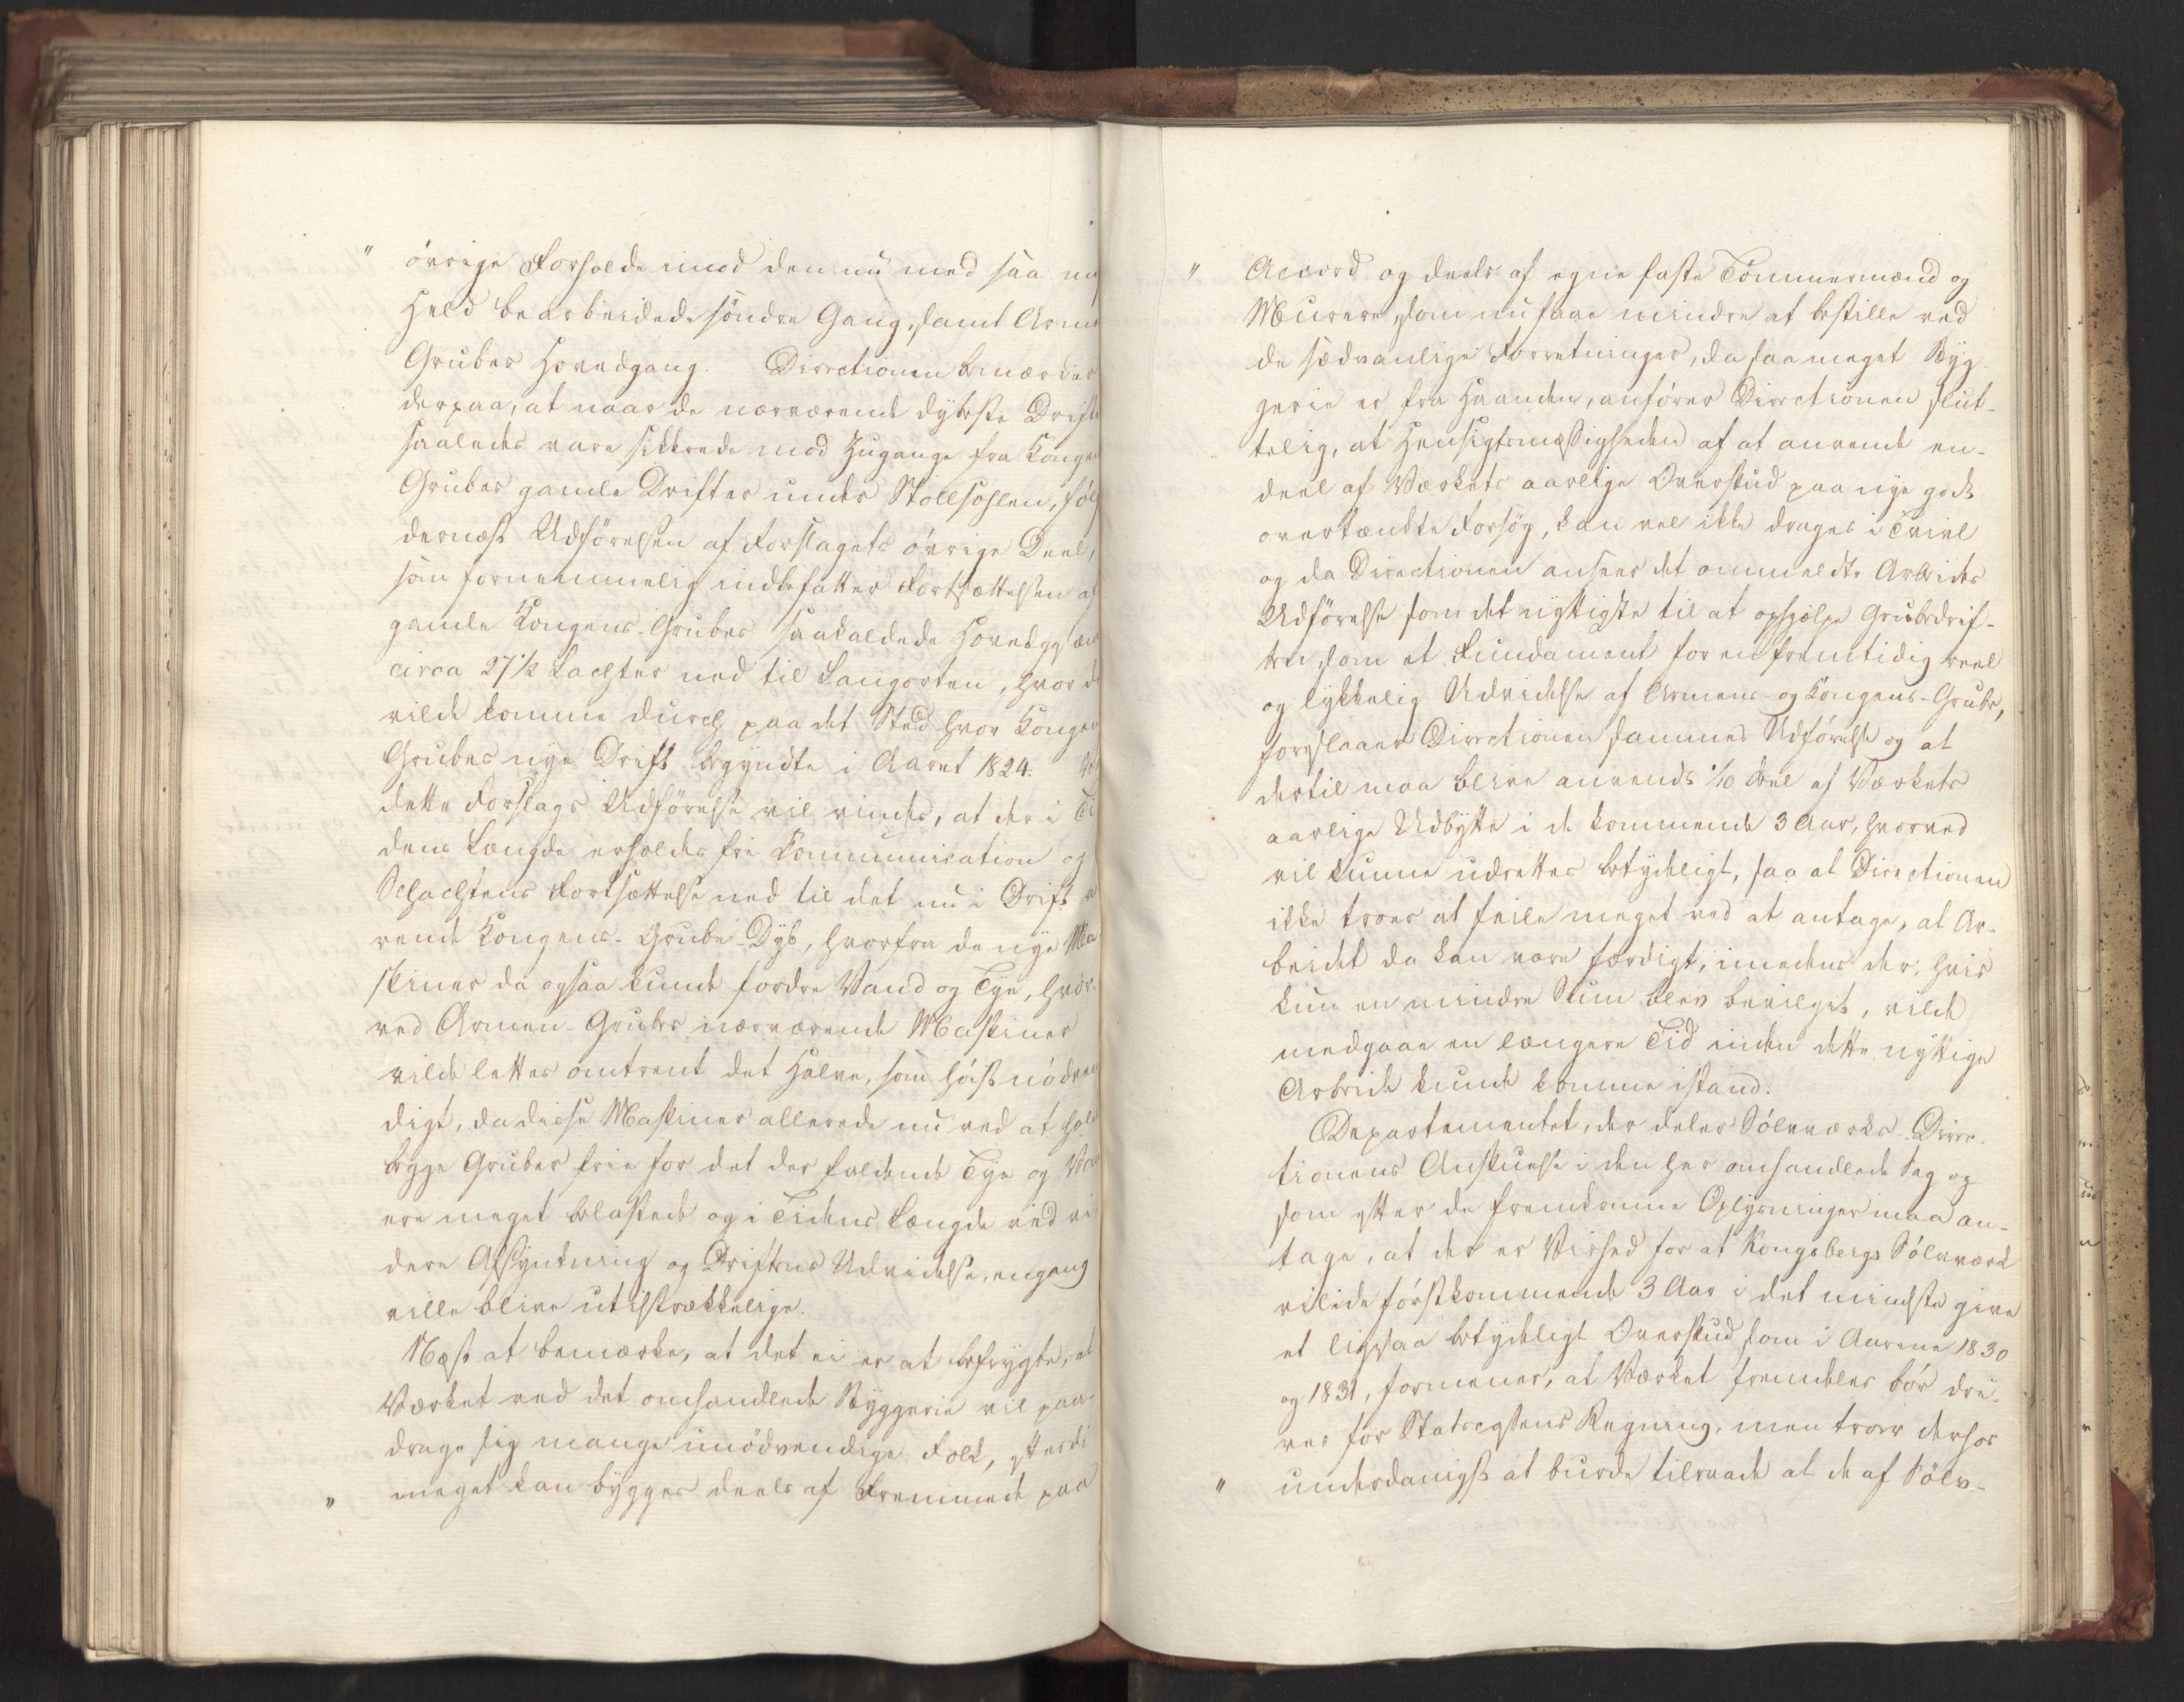 " övrige Forholde imod den nu med saa
Held bearbeidede söndre Gang, samt Arme
Grubes Hovedgang. Directionen bemærker
derpaa, at naar de nærværende dybeste Drift
saaledes vare sikkrede mod Zugange fra Konge
Grubes gamle Drifter under Stollsohlen, föl
dernæst Udförelsen af Forslagets övrige Deel,
som fornemmelig indbefatter Fortsættelsen af
gamle Kongens-Grubes saakaldede
circa 27½ Lachter ned til Langorten, hvor d
vilde komme durch paa det Sted hvor Konge
Grubes nye Drift begyndte i Aaret 1824.
dette Forslags Udförelse vil vindes, at der i Ti
dens Længde erholdes fri Communication og
Schachtens Fortsættelse ned til det nu i Drift
rende Kongens-Grube-Dyb, hvorfra de nye Ma
skiner da ogsaa kunde fordre Vand og Tye, hvor-
ved Armen-Grubes nærværende Maskiner
vilde lettes omtrent det Halve, som höist nödven
digt, da disse Maskiner allerede nu ved at hol
begge Gruber frie for det der faldende Tye og Va
ere meget belastede og i Tidens Længde ved vi
dere Afsynkning og Driftens Udvidelse, engang
ville blive utilstrækkelige.
Næst at bemærke, at det ei er at befrygte, at
Værket ved det omhandlede Byggerie vil paa-
drage sig mange unödvendige Folk, efterdi
" meget kan bygges deels af Fremmede paa
" Accord og deels af egne faste Tömmermænd og
Murere, som nu faae mindre at bestille ved
de sædvanlige Forretninger, da saa meget Byg-
gerie er fra Haanden, anförer Directionen slut-
telig, at Hensigtsmæssigheden af at anvende en-
deel af Værkets aarlige Overskud paa nye godt
overtænkte Forsög, kan vel ikke drages i Tvivl
og da Directionen ansees det ommeldte Arbeides
Udförelse som det nyttigste til at ophjelpe Grubedrif-
ten, som et Fundament for en fremtidig reel
og lykkelig Udvidelse af Armens- og Kongens-Grube,
foreslaaer Directionen sammes Udförelse og at
dertil maa blive anvendt 1/10 Deel af Værkets
aarlige Udbytte i de kommende 3 Aar, hvorved
vil kunne udrettes betydeligt, saa at Directionen
ikke troer at feile meget ved at antage, at Ar-
beidet da kan være færdigt, imedens der, hvis
kun en mindre Sum blev bevilget, vilde
medgaae en længere Tid inden dette nyttige
Arbeide kunde komme istand.
Departementet, der deler Sölvværks-Direc-
tionens Anskuelse i den her omhandlede Sag og
som efter de fremkomne Oplysninger maa an-
tage, at der er Vished for at Kongsbergs Sölvværk
vil i de förstkommende 3 Aar i det mindste give
et ligesaa betydeligt Overskud som i Aarene 1830
og 1831, formener, at Værket fremdeles bör dri-
ves for Statscassens Regning, men troer derhos
" underdanigst at burde tilraade at de af Sölv-